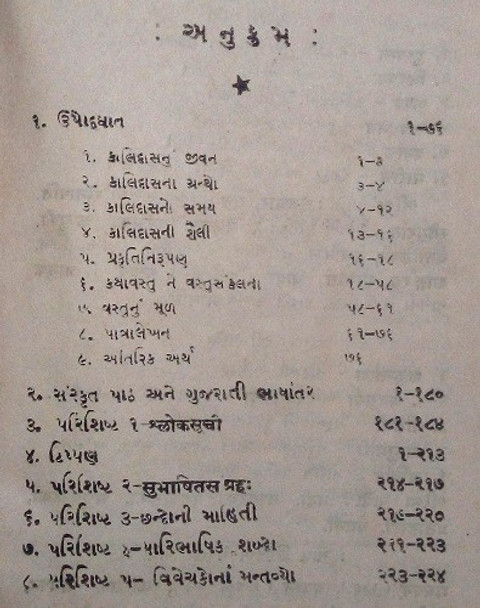 : અનુક્રમ :
૧. ઉપોદ્ઘાત ૧-૭૬
૧. કાલિદાસનું જીવન ૧-૩
૨. કાલિદાસના ગ્રન્થો ૩-૪
૩. કાલિદાસનો સમય ૪-૧૨
૪. કાલિદાસની શૈલી ૧૩-૧૬
૫. પ્રકૃતિનિરૂપણ ૧૬-૧૮
૬. કથાવસ્તુ ને વસ્તુસંકલના ૧૮-૫૮
૭. વસ્તુનું મૂળ ૫૮-૬૧
૮. પાત્રાલેખન ૬૧-૭૬
૯. આંતરિક અર્થ ૭૬
૨. સંસ્કૃત પાઠ અને ગુજરાતી ભાષાંતર ૧-૧૮૦
૩. પરિશિષ્ટ ૧-શ્લોકસૂચી ૧૮૧-૧૮૪
૪. ટિપ્પણ ૧-૨૧૩
૫. પરિશિષ્ટ ૨-સુભાષિતસંગ્રહઃ ૨૧૪-૨૧૭
૬. પરિશિષ્ટ ૩-છન્દોની માહિતી ૨૧૭-૨૨૦
૭. પરિશિષ્ટ ૪-પારિભાષિક શબ્દો ૨૨૧-૨૨૩
૮. પરિશિષ્ટ ૫- વિવેચકોનાં મન્તવ્યો ૨૨૩-૨૨૪